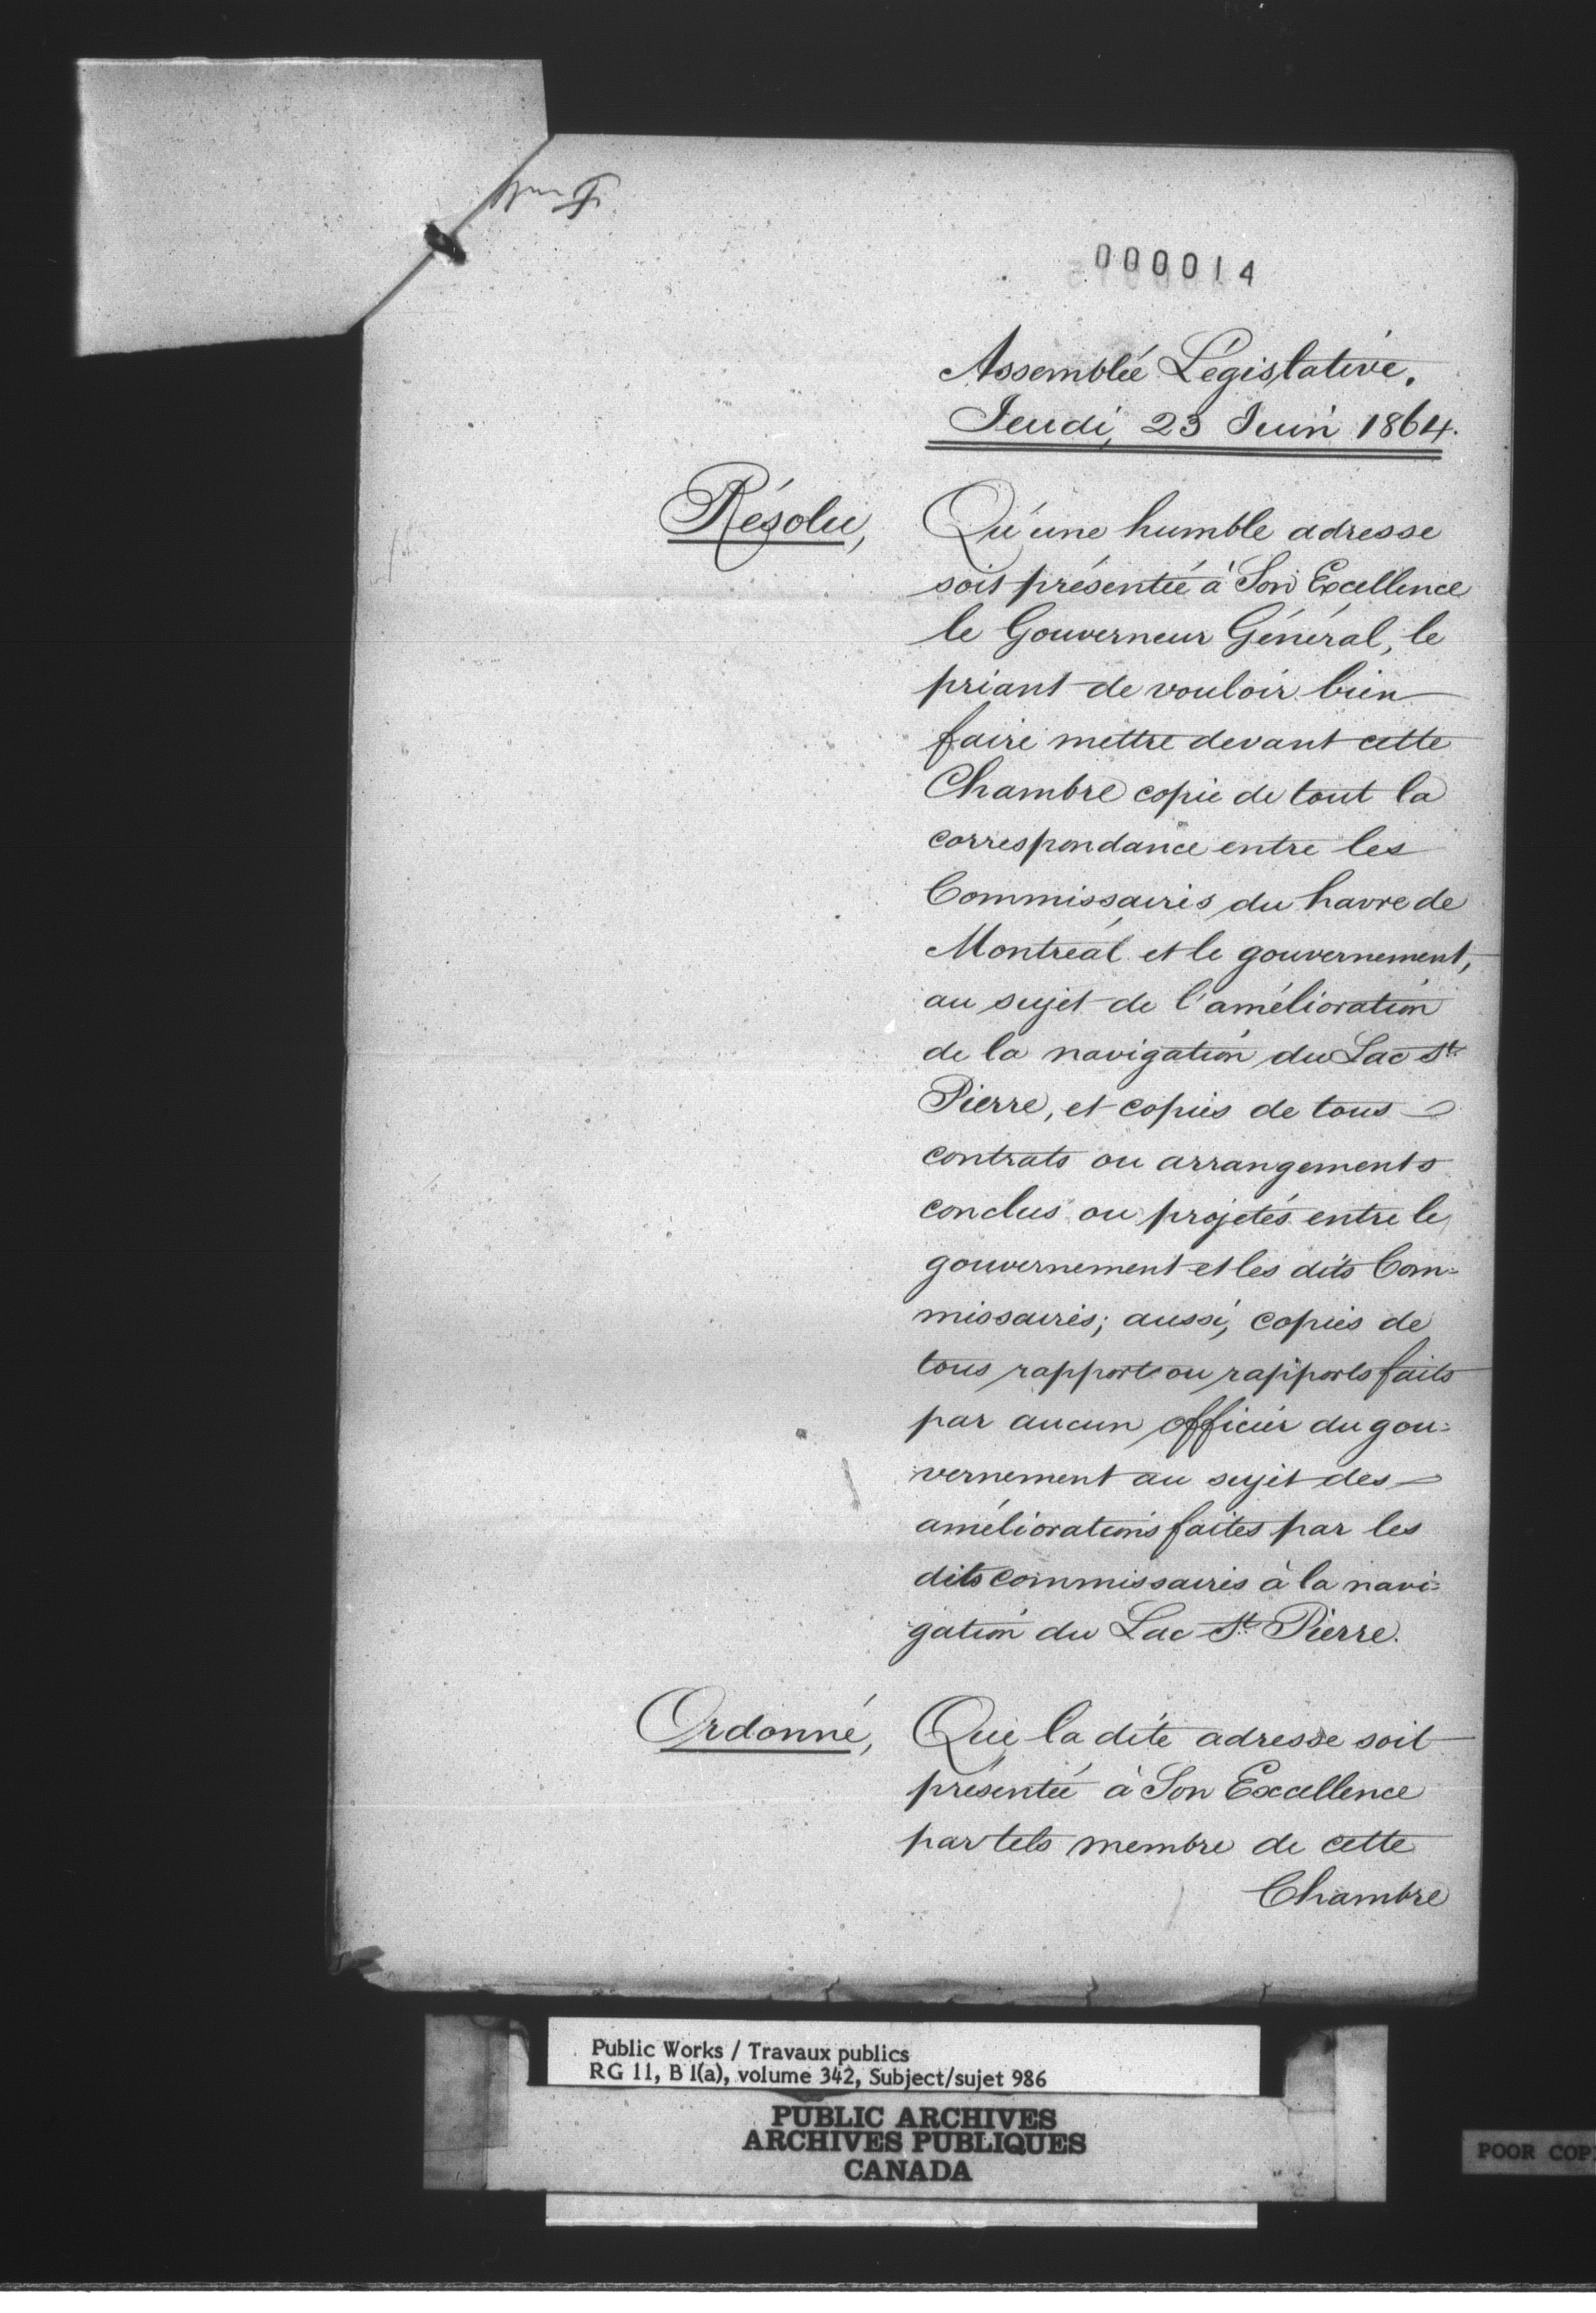 000014
Assemblée Législative.
Jeudi, 23 Juin 1864.
Résolu, Qu'une humble adresse
soit présentée à Son Excellence
le Gouverneur Général, le
priant de vouloir bien
faire mettre devant cette
Chambre copie de tout la
correspondance entre les
Commissaires du havre de
Montréal et le gouvernement,
au sujet de l'amélioration
de la navigation du Lac St.
Pierre, et copies de tous
contrats ou arrangements
conclus ou projetés entre le
gouvernement et les dits Com=
missaires; aussi, copies de
tous rapport ou rapports faits
par aucun officier du gou=
vernement au sujet des
améliorations faites par les
dits commissaires à la navi=
gation du Lac St. Pierre.
Ordonné, Que la dite adresse soit
présentée à Son Excellence
par tels membre de cette
Chambre
Public Works / Travaux publics
RG 11, B 1(a), volume 342, Subject/sujet 986
PUBLIC ARCHIVES
ARCHIVES PUBLIQUES
CANADA
POOR COP